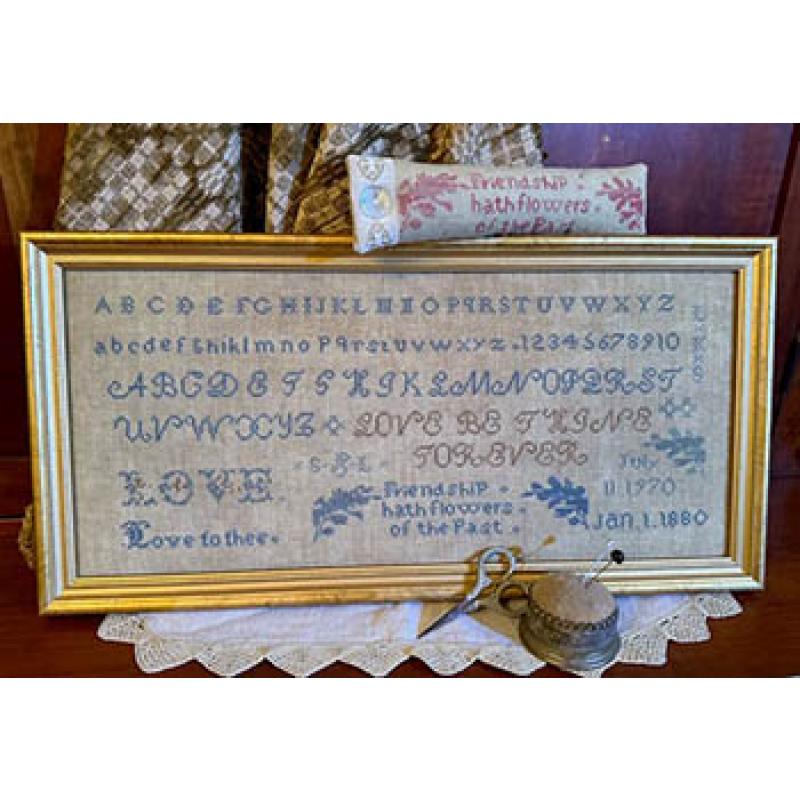 Friendship
hath flowers
of the Past
A B C D E F G H I J K L M N O P Q R S T U V W X Y Z
a b c d e f g h i k l m n o p q r s t u v w x y z . 1 2 3 4 5 6 7 8 9 10
A B C D E F G H I K L M N O P Q R S T
U V W X Y Z LOVE BE THINE
FOREVER
S L
LOVE
Love to thee.
Friendship
hath flowers
of the Past.
July
11.1970
Jan.1.1880